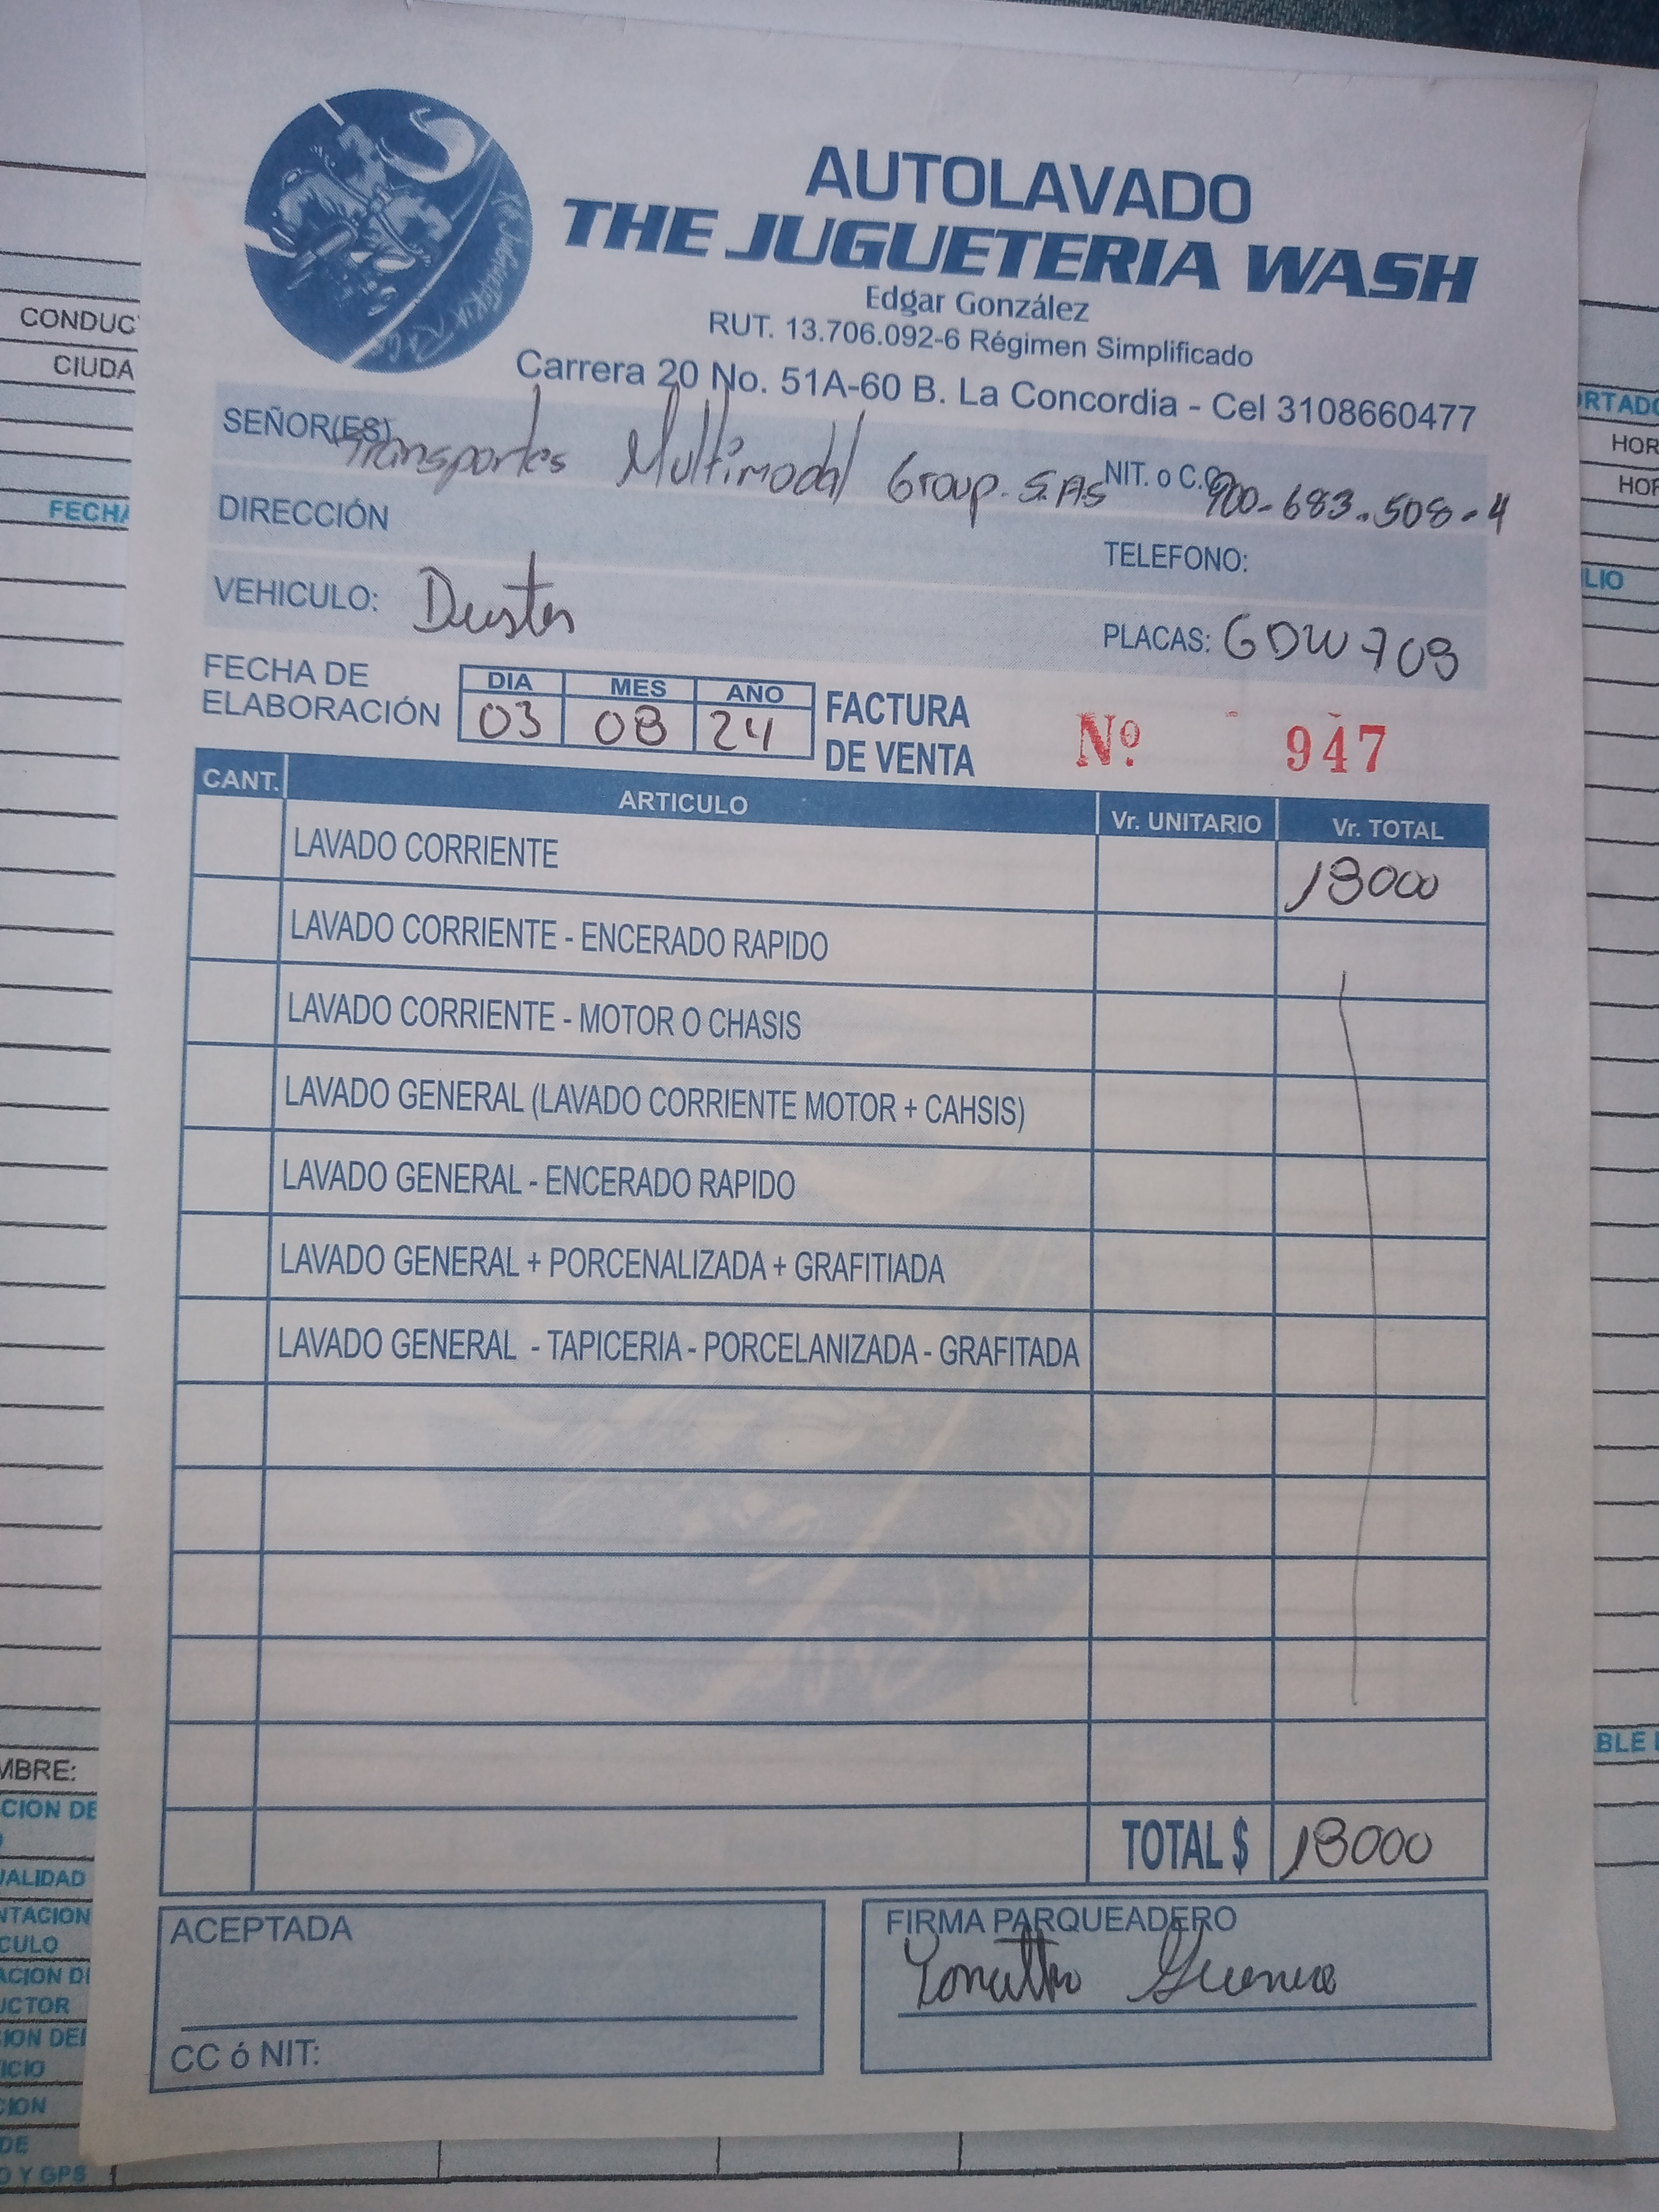 AUTOLAVADO
THE JUGUETERIA WASH
Edgar González
RUT. 13.706.092-6 Régimen Simplificado
Carrera 20 No. 51A-60 B. La Concordia - Cel 3108660477
SEÑOR(ES) Transportes Multimodal Group. S.AS NIT. o C.C. 900-683.508-4
DIRECCIÓN
TELEFONO:
VEHICULO: Duster
PLACAS: GDW 709
FECHA DE
ELABORACIÓN
DIA MES AÑO
03 08 24
FACTURA
DE VENTA
Nº. 947
CANT. ARTICULO Vr. UNITARIO Vr. TOTAL
LAVADO CORRIENTE 18000
LAVADO CORRIENTE - ENCERADO RAPIDO
LAVADO CORRIENTE - MOTOR O CHASIS
LAVADO GENERAL (LAVADO CORRIENTE MOTOR + CAHSIS)
LAVADO GENERAL - ENCERADO RAPIDO
LAVADO GENERAL + PORCENALIZADA + GRAFITIADA
LAVADO GENERAL - TAPICERIA - PORCELANIZADA - GRAFITADA
TOTAL $ 18000
ACEPTADA
CC ó NIT:
FIRMA PARQUEADERO
CONDUC
CIUDA
FECHA
MBRE:
CION DE
ALIDAD
NTACION
CULO
ACION DE
UCTOR
ION DEL
ICIO
CION
DE
O Y GPS
RTADO
HOR
HOR
LIO
BLE